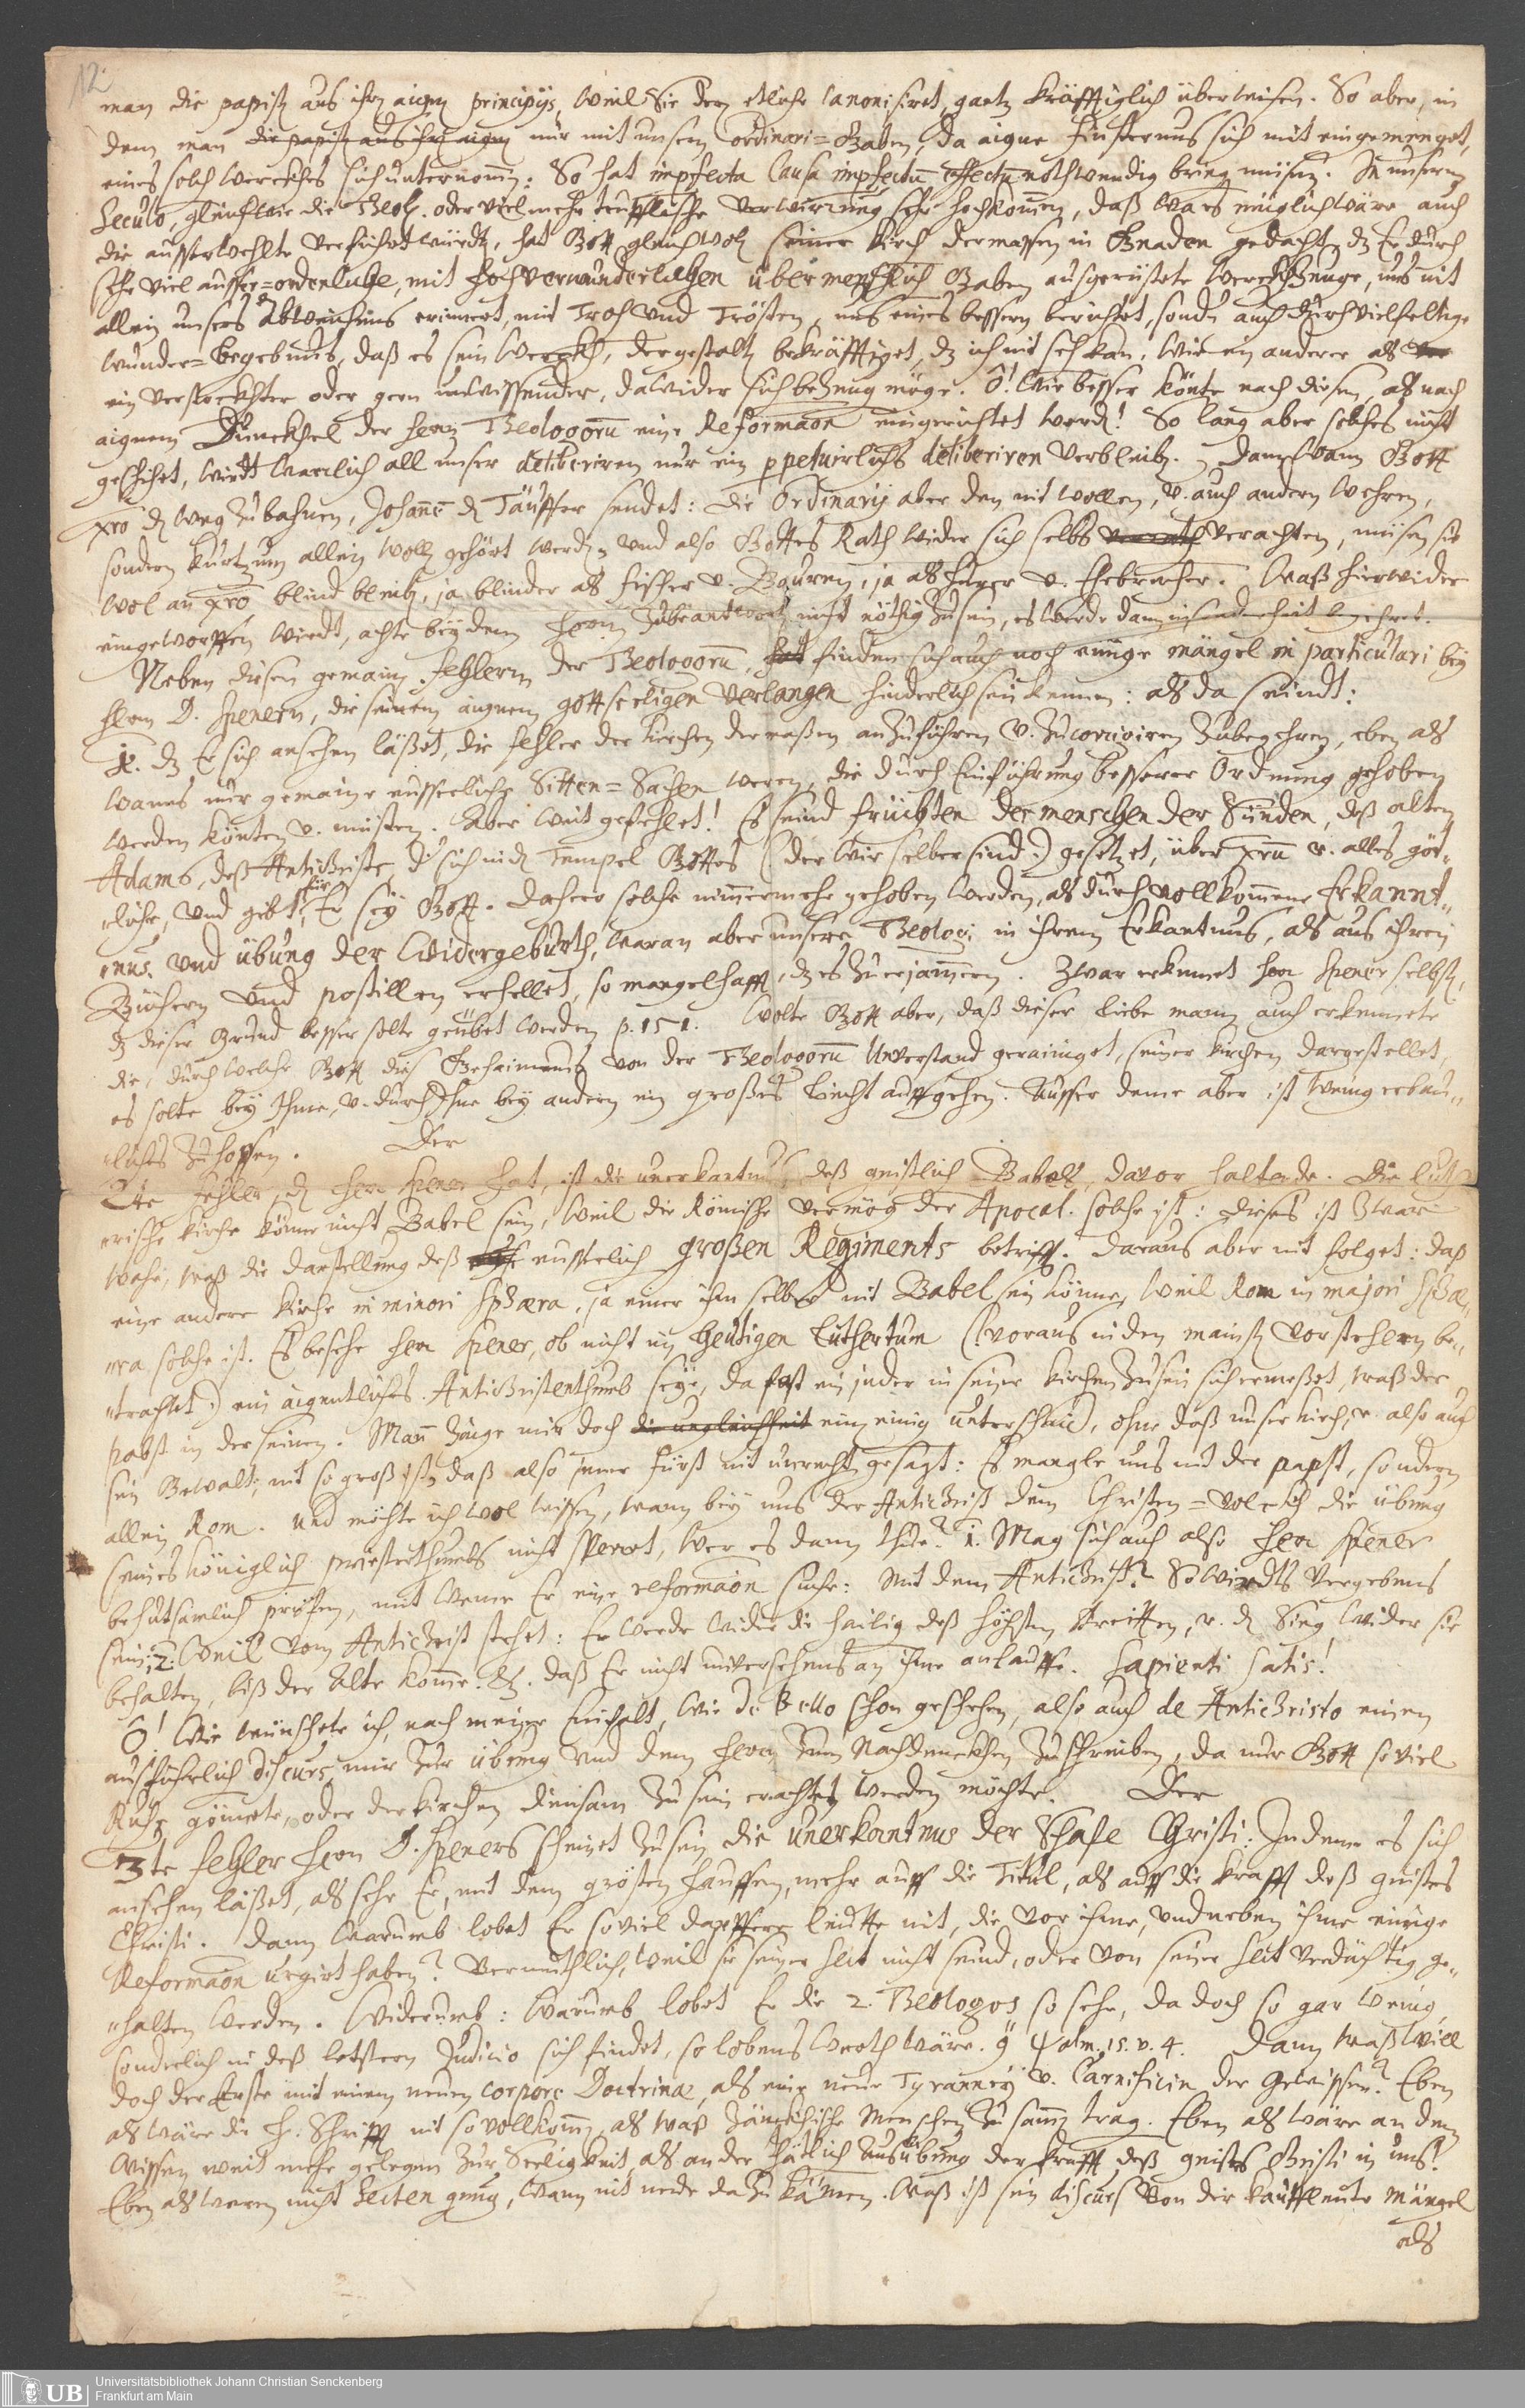 12.
man die papist aus ihrn aignen principiis, weil Sie den Mehr canonisiret, gantz kräfftiglich überweisen. So aber, in
dem man die papist aus ihrn aignen nur mit unsern ordinari=Gaben, da aigne finsternus sich mit eingemenget,
eines solch Werckhes sich unternomen: So hat impfecta Causa impfectum effectum nothwendig bringen müsen. In unserm
Seculo, gleich wie die Theol. oder viel mehr teuflische Verwirrung sehr hochkomen, daß wans müglich wäre auch
die ausserwehlte verführet würdn, hat Gott gleichwol seiner Kirch dermassen in Gnaden gedacht, dz Er durch
sehr viel ausser=ordenliche, mit hochverwunderlichen übermenschlich Gaben ausgerüstete Werckhzeuge, uns nit
allein unsers Abweichens erinnert, mit Troh und Trösten, uns eines bessern berichtet, sondn auch durch vielfeltige
wunder=begebnus, daß es sein Werckh, dergestalt bekräfftiget, dz ich nit seh kan, wie ein anderer als
ein verstockhter oder gern unwissender, dawider sich bezeug möge. O! wie besser könte nach diesen, als nach
aignem Dunckhel der hern Theologorum eine Reformaon eingerichtet werdn! So lang aber solches nicht
geschihet, wirdt warlich all unser deliberiren nur ein ppetuirlichs deliberiren verbleibn. Dann wann Gott
xro dn weg zu bahnen, Johannem dn Täuffer sendet: die Ordinarij aber den nit wollen, v. auch andern wehren,
sondern kurtzum allein woln gehört werdn, und also Gottes Rath wider sich selbs verachten, müsen sie
wol an xro blind bleibn, ja blinder als fischer v. Bauren, ja als Hurer v. Ehebrecher. Waß hierwider
eingeworffen wirdt, achte bey dem hern zubeantworten nicht nöthig zu sein, es werde dann insonderheit begehret.
Neben diesen gemainen fehlern der Theologorum, finden sich auch noch einige mängel in particulari bey
hern D. Spenern, die seinem aignem gottseeligen Verlangen hinderlich sein kennen: als da seindt:
1. dz Er sich ansehen läßet, die fehler der Kirchen dermaßen anzuführen v. zu corrigiren zubegehren, eben als
wanns nur gemaine eusserliche Sitten=Sachen weren, die durch Einführung besserer Ordnung gehoben
werden könten v. müsten. Aber weit gefehlet! Es seind früchten des menschen der Sünden, deß alten
Adams, deß Antichrists, der sich in dn Tempel Gottes (: der wir selber sind :) gesetzet, über xrum v. alles göt„
„liche, und gibt für, Er sey Gott. Daher solche nimermehr gehoben werden, als durch vollkomene Erkannt„
„nus und übung der Widergeburth, waran aber unsere Theologi in ihrem Erkantnus, als aus ihren
Büchern und postillen erhellet, so mangelhafft, dz es zu erjamern. Zwar erkennet herr Spener selbst,
dz dieser Grund besser solte geübet werden p. 151. Wolte Gott aber, daß dieser liebe mann auch erkennete
die, durch welche Gott dies Geheimnus von der Theologorum Unverstand gerainiget, seiner Kirchen dargestellet,
es solte bey Ihme, v. durch Ihne bey andern ein großes Liecht auffgehen. Ausser deme aber ist wenig erbau„
„liches zu hoffen. Der
2te fehler, dn herr Spener hat, ist die unerkantnus deß geistlich Babels, davor haltende. Die luth„
„erische Kirche könne nicht Babel sein, weil die Römische vermög der Apocal. solche ist: dieses ist zwar
wahr, waß die darstellung deß eusserlich großen Regiments betrifft. Daraus aber nit folget: daß
eine andere Kirche in minori Sphæra, ja einer ihm selbst nit Babel sein könne, weil Rom in majori Sphæ„
„ra solche ist. Es besehe herr Spener, ob nicht im heutigen Lutherthum (: voraus in den mainst Vorstehern be„
„tracht :) ein aigentliches Antichristenthumb seye, da fast ein jeder in seiner Kirchen zu sein sich vermeßet, waß der
pabst in der seinen. Man zaige mir doch die ungleichheit ein einig unterschaid, ohne daß unser Kirch, v. also auch
sein Gewalt, nit so groß ist, daß also jener fürst nit unrecht gesagt: Es mangle uns nit der papst, sondern
allein Rom. Und möchte ich wol wissen, wann bey uns der Antichrist dem Christen=volckh die übung
seines königlich priesterthumbs nicht sperret, wer es dann thue? 1. Mag sich auch also herr Spener
behutsamlich prüfen, mit weme Er eine reformaon suche: Mit dem Antichrist? So wirdts vergebens
sein; 2. Weil vom Antichrist stehet: Er werde wider die hailig deß höchsten streitten, v. dn Sieg wider sie
behalten, biß der Alte kome. &. daß Er nicht unversehens an ihne anlauffe. Sapienti satis!
O! Wie wünschete ich, nach meiner Einfalt, wie de Bello schon geschehen, also auch de Antichristo einen
ausführlich discurs mir zur übung und dem hern zum Nachdenckhen zuschreiben, da mir Gott so viel
Ruhe gönnete, oder der Kirchen diensam zu sein erachtet werden möchte. Der
3te fehler hern D. Speners scheinet zu sein die unerkantnus der Schafe Christi: Indeme es sich
ansehen läßet, als sehe Er, mit dem grösten hauffen, mehr auff die Titul, als auff die krafft deß geistes
Christi. Dann warumb lobet Er soviel dapffere leütte nit, die vor ihme, und neben ihme einige
Reformaon urgirt haben? Vermuthlich, weil sie seiner Sect nicht seind, oder von seiner Sect verdächtig ge„
„halten werden. Widerumb: warumb lobet Er die 2. Theologos so sehr, da doch so gar wenig,
sonderlich in deß letstern Judicio sich findet, so lobens werth wäre. Psalm. 15. v. 4. Dann waß will
doch der Erste mit einem neuen corpore Doctrinæ, als eine neue Tyranney v. Carnificin der Gewissen? Eben
als wäre die H. Schrifft nit so vollkomen, als waß zänckhische Menschen zusamen tragn. Eben als wäre an dem
Wissen weit mehr gelegen zur Seeligkeit, als an der thätlich Ausübung der krafft deß geistes Christi in uns?
Eben als weren nicht Secten gnug, wann nit neue dazu kämen. Waß ist sein discurs von der kauffleute mängel
als
UB Universitätsbibliothek Johann Christian Senckenberg
Frankfurt am Main